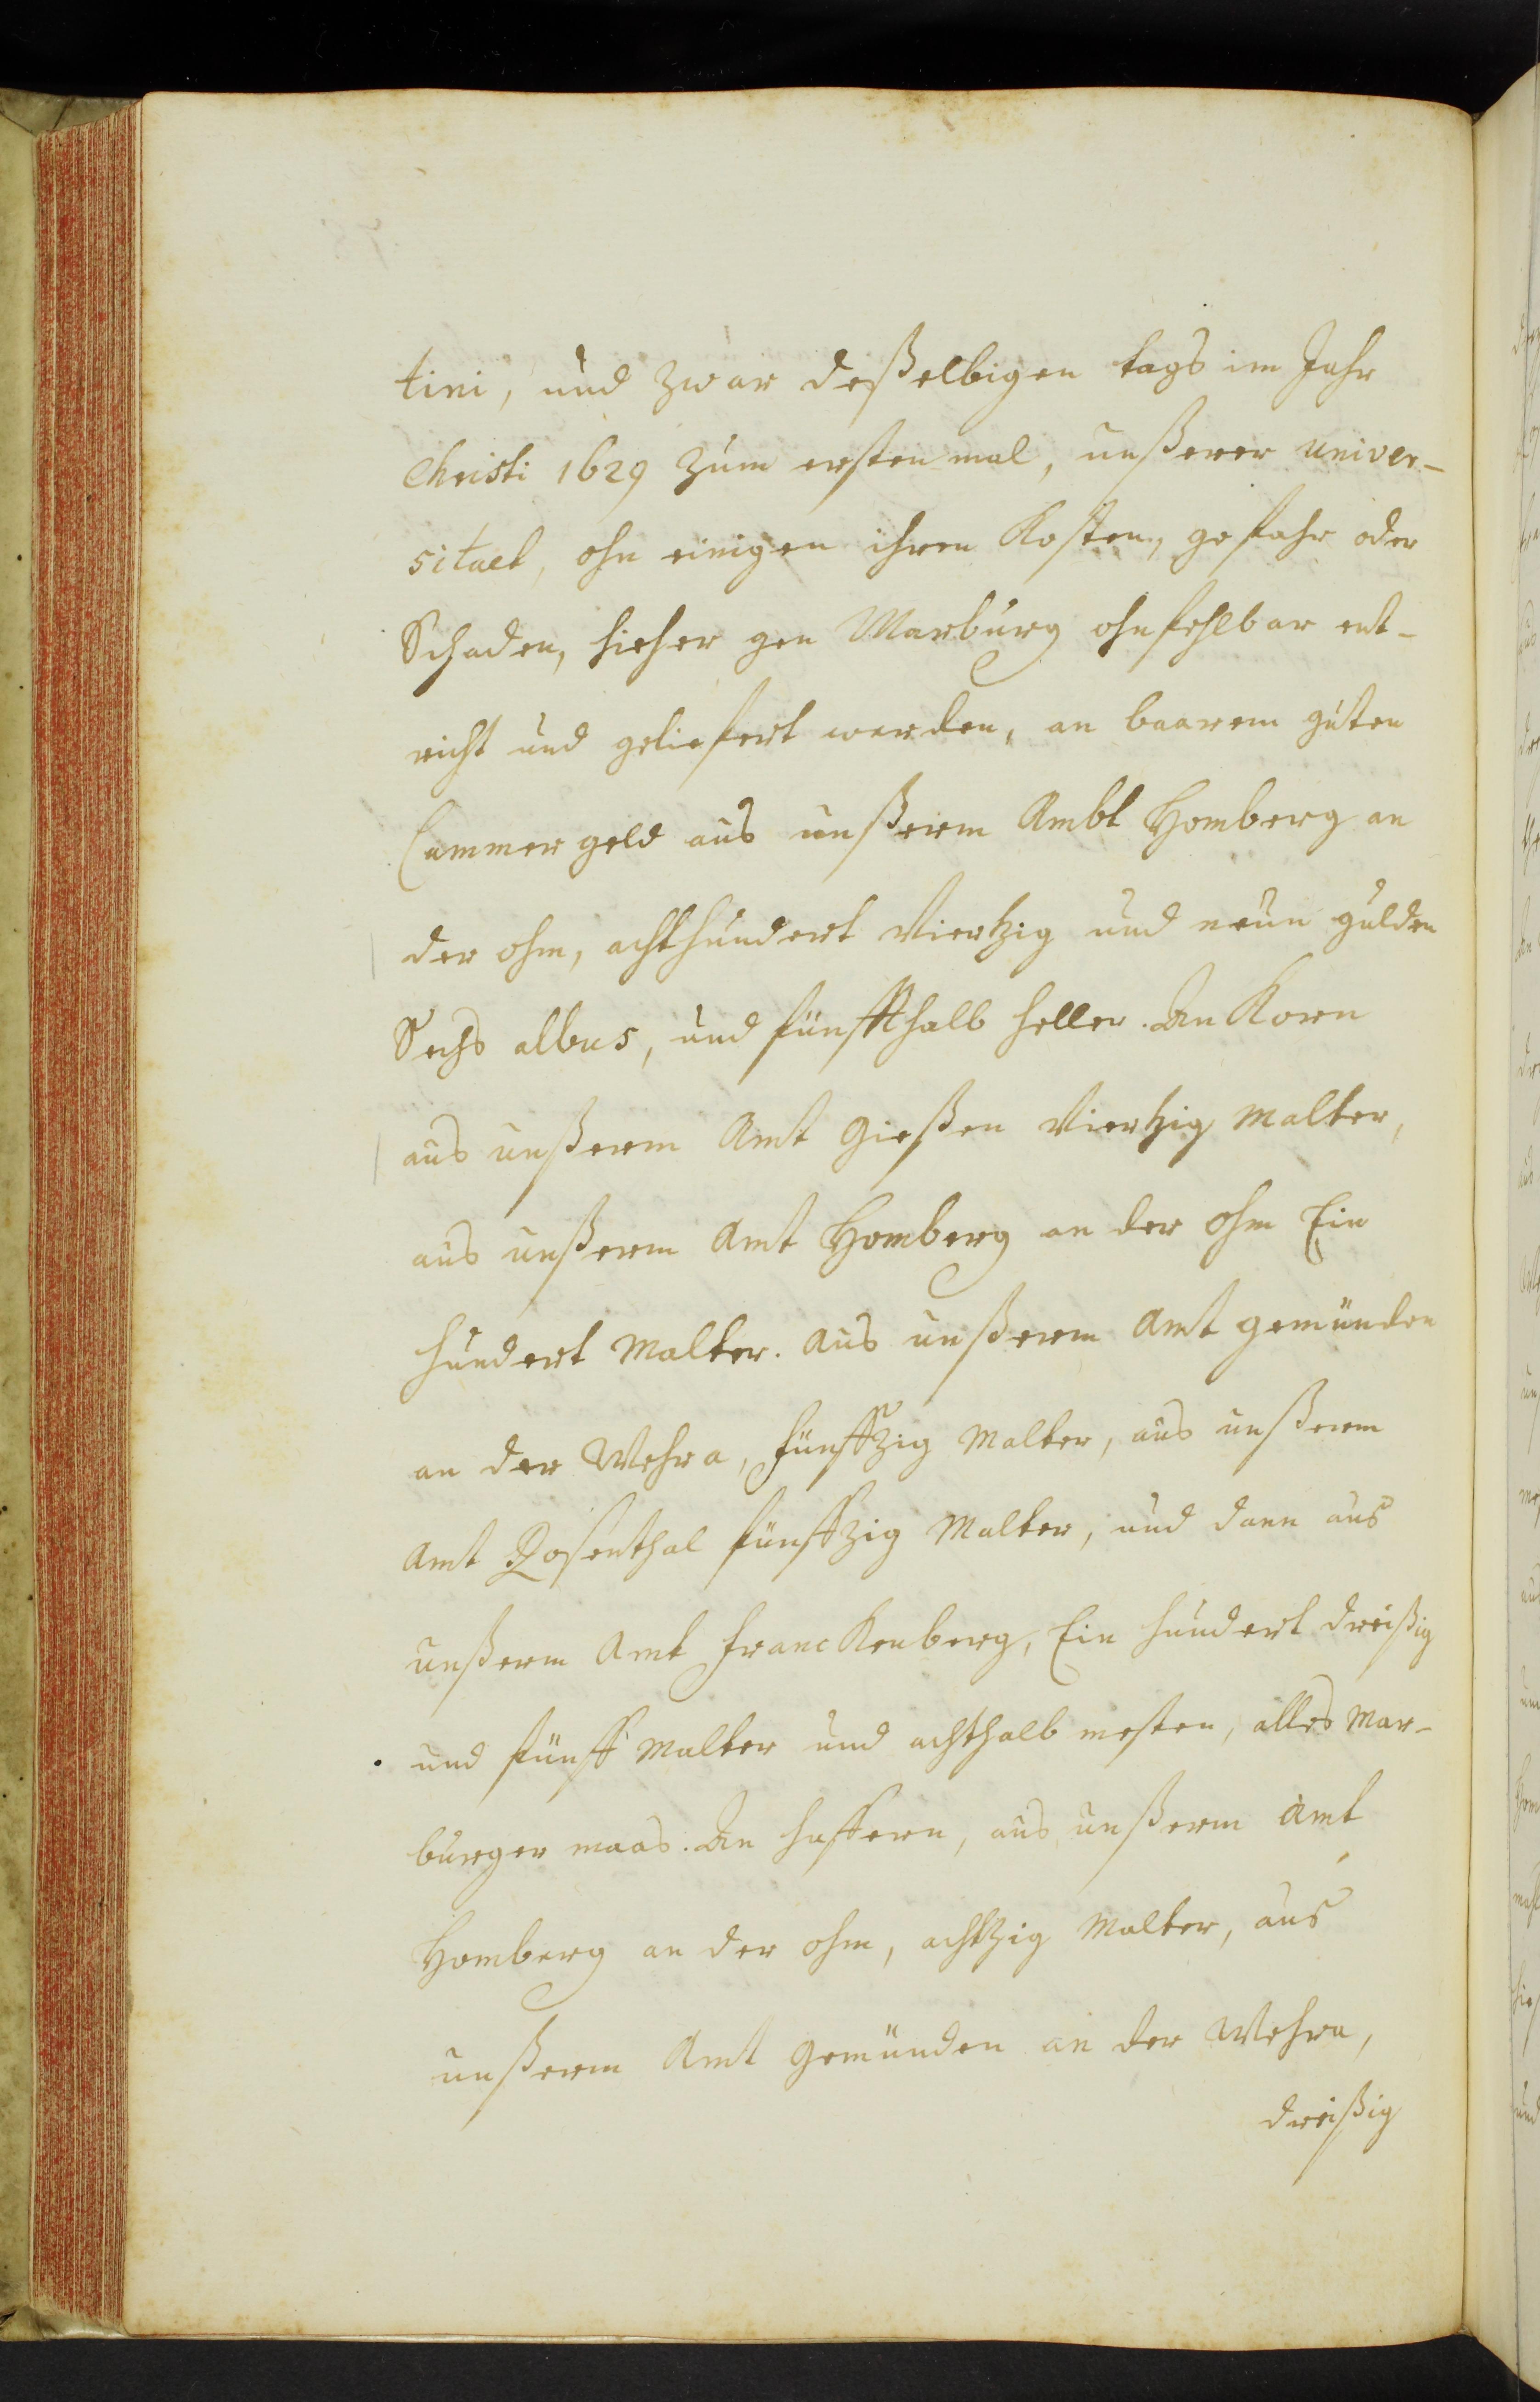 tini, und zwar deßelbigen tags im Jahr
Christi 1629 zum ersten mal, unßerer univer-
sitaet, ohn einigen ihren Kosten, gefahr oder
Schaden, hieher gen Marburg ohnfehlbar ent-
richt und geliefert werden, an baarem guten
Cammergeld aus unßerm Ambt Homberg an
der ohm, achthundert Viertzig und neun gulden
Sechs albus, und fünffthalb heller. An Korn
aus unßerm Amt Gießen Viertzig Malter,
aus unßerm Amt Homberg an der ohm Ein
hundert Malter. Aus unßerm Amt gemünden
an der Wehra, fünffzig Malter, aus unßerm
Amt Rosenthal fünffzig Malter, und dann aus
unßerm Amt Franckenberg, Ein hundert dreißig
und fünff Malter und achthalb mesten, alles Mar-
burger maas. An haffern, aus unßerm Amt
Homberg an der ohm, achtzig Malter, aus
unßerm Amt Gemünden an der Wehra,
dreißig